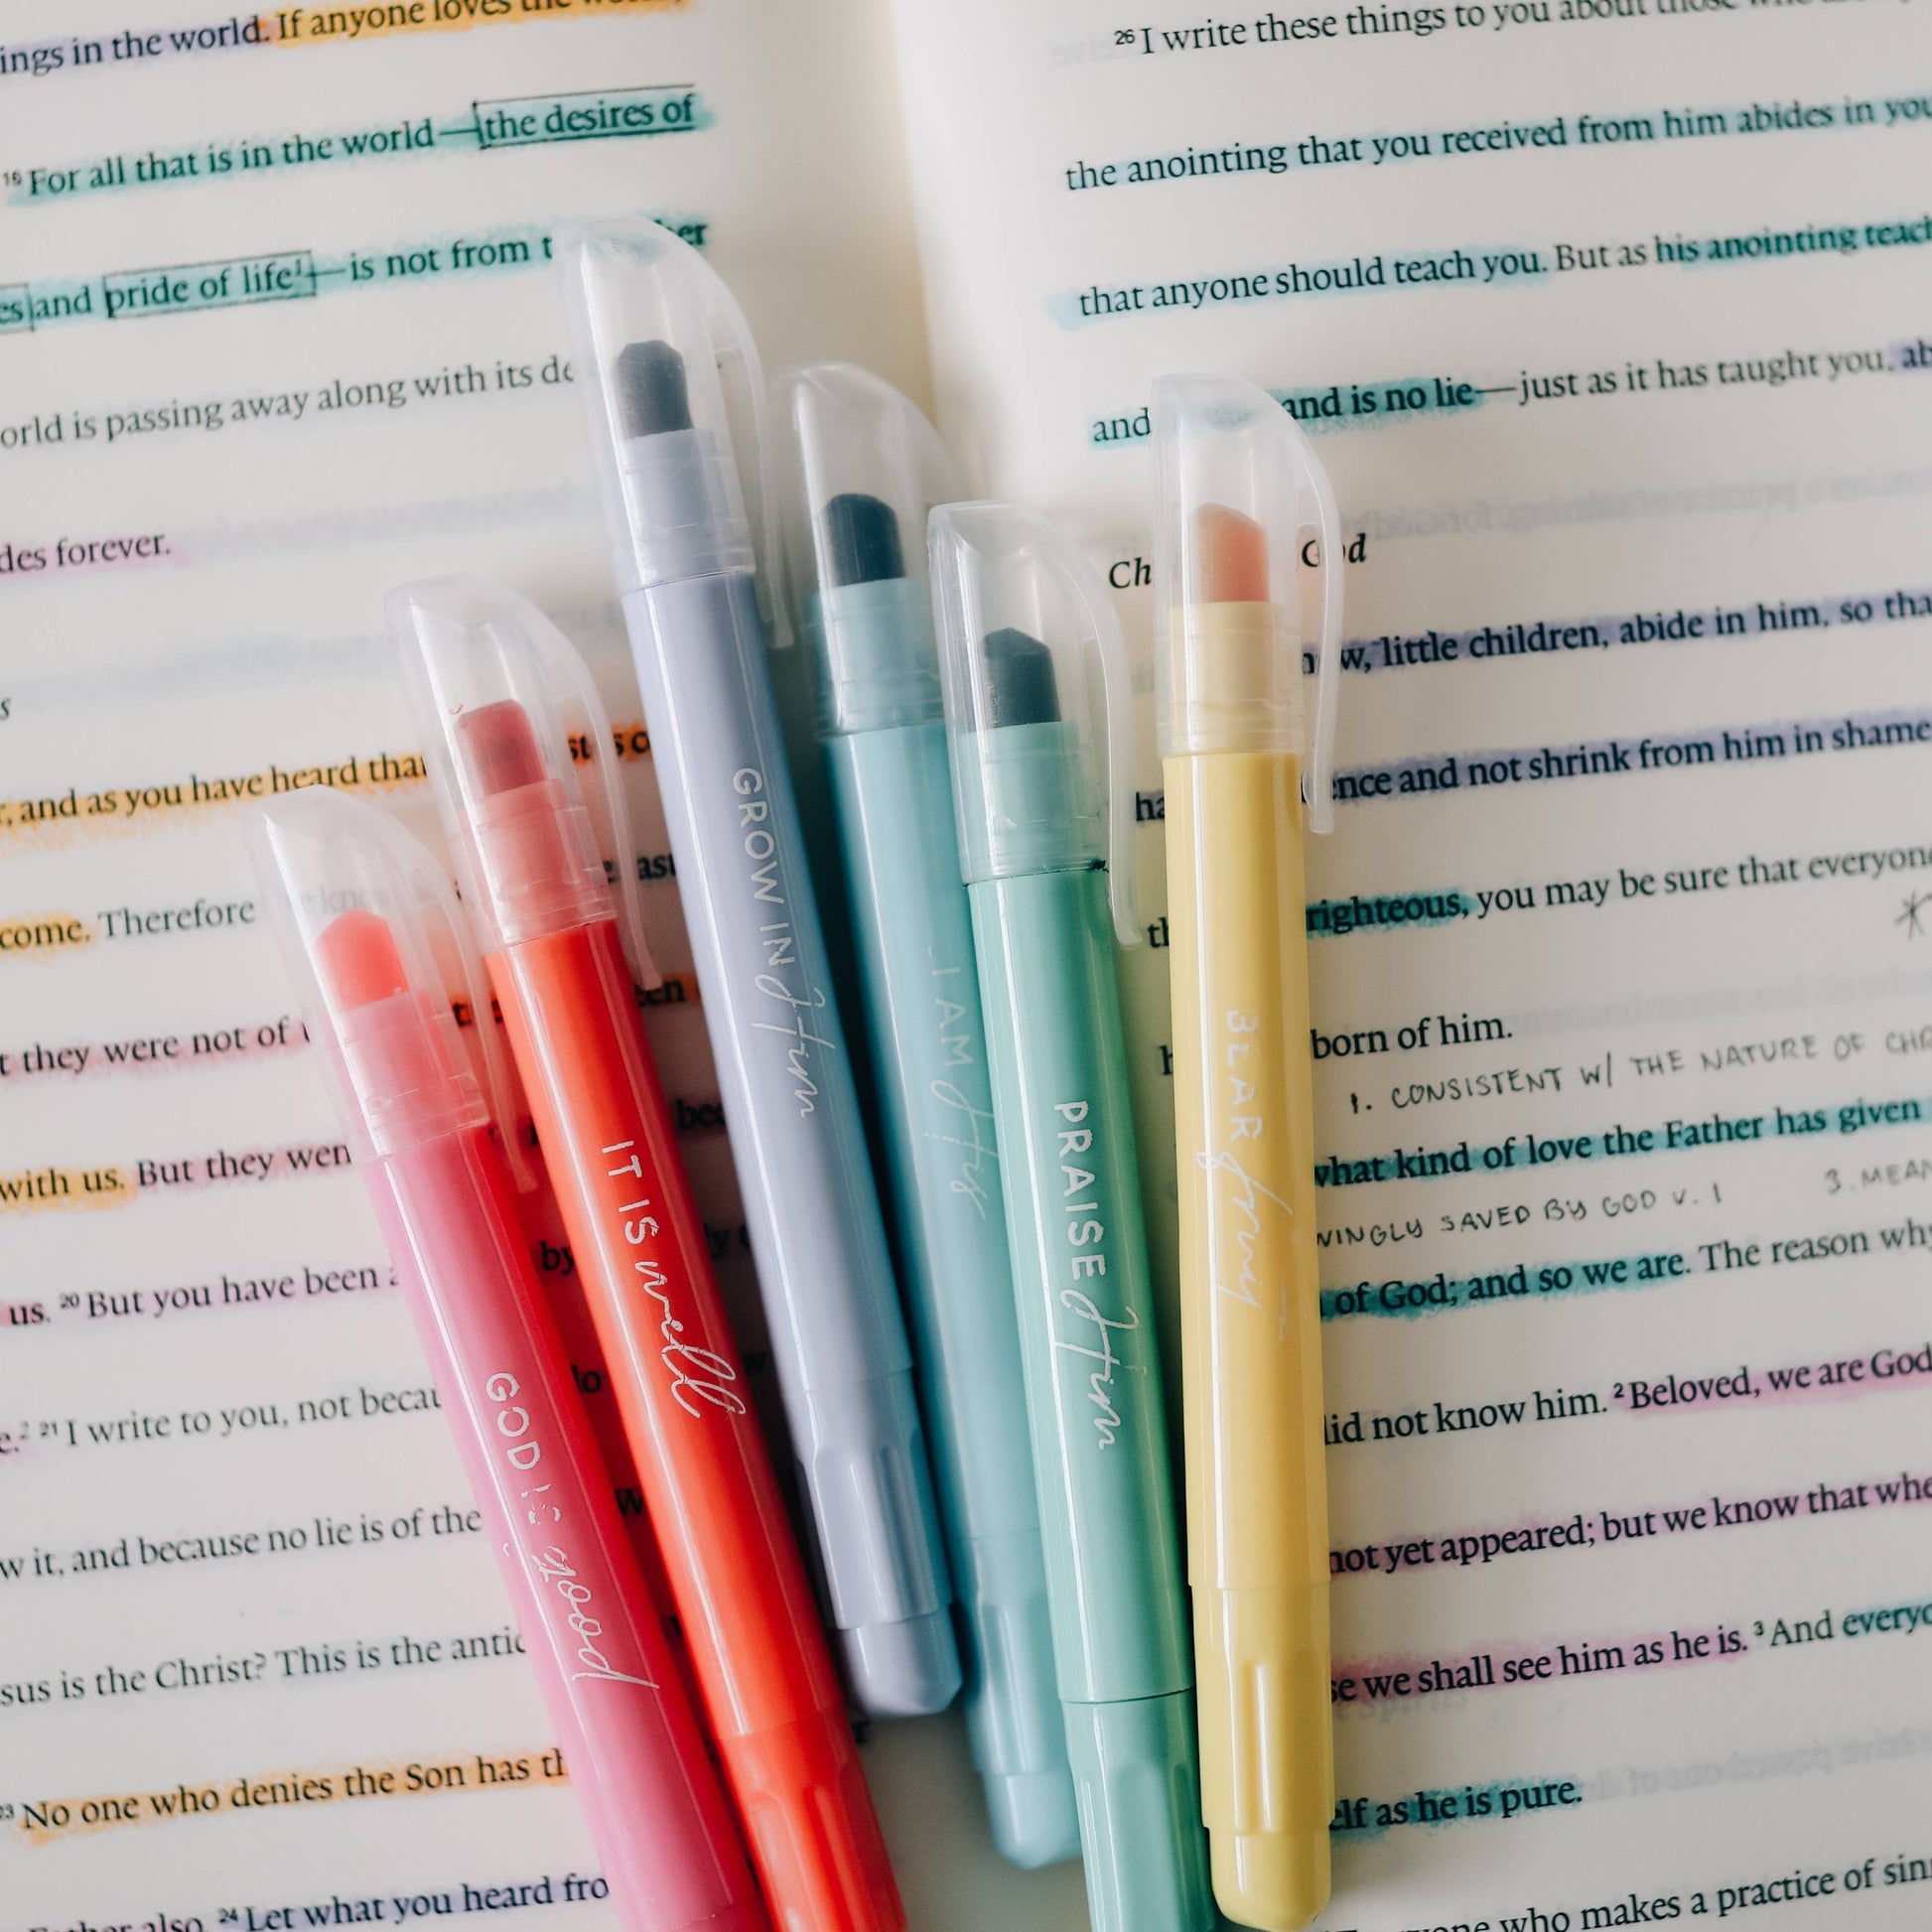 ings in the world. If anyone loves the
16 For all that is in the world—the desires of
es and pride of life1—is not from t er
orld is passing away along with its de
des forever.
s
r, and as you have heard that
come. Therefore
t they were not of
with us. But they wen
us. 20 But you have been a by
e.2 21 I write to you, not becau
w it, and because no lie is of the
sus is the Christ? This is the antic
23 No one who denies the Son has th
also. 24 Let what you heard fro
26 I write these things to you about those
the anointing that you received from him abides in you
that anyone should teach you. But as his anointing teach
and and is no lie—just as it has taught you, ab
Ch God
now, little children, abide in him, so tha
ha ence and not shrink from him in shame
th righteous, you may be sure that everyone
born of him.
1. CONSISTENT W/ THE NATURE OF CHR
what kind of love the Father has given
WINGLY SAVED BY GOD V. 1 3. MEAN
of God; and so we are. The reason why
did not know him. 2 Beloved, we are God
not yet appeared; but we know that whe
se we shall see him as he is. 3 And everyo
elf as he is pure.
one who makes a practice of sin
GOD IS good
IT IS well
GROW IN Him
I AM His
PRAISE Him
BEAR fruit